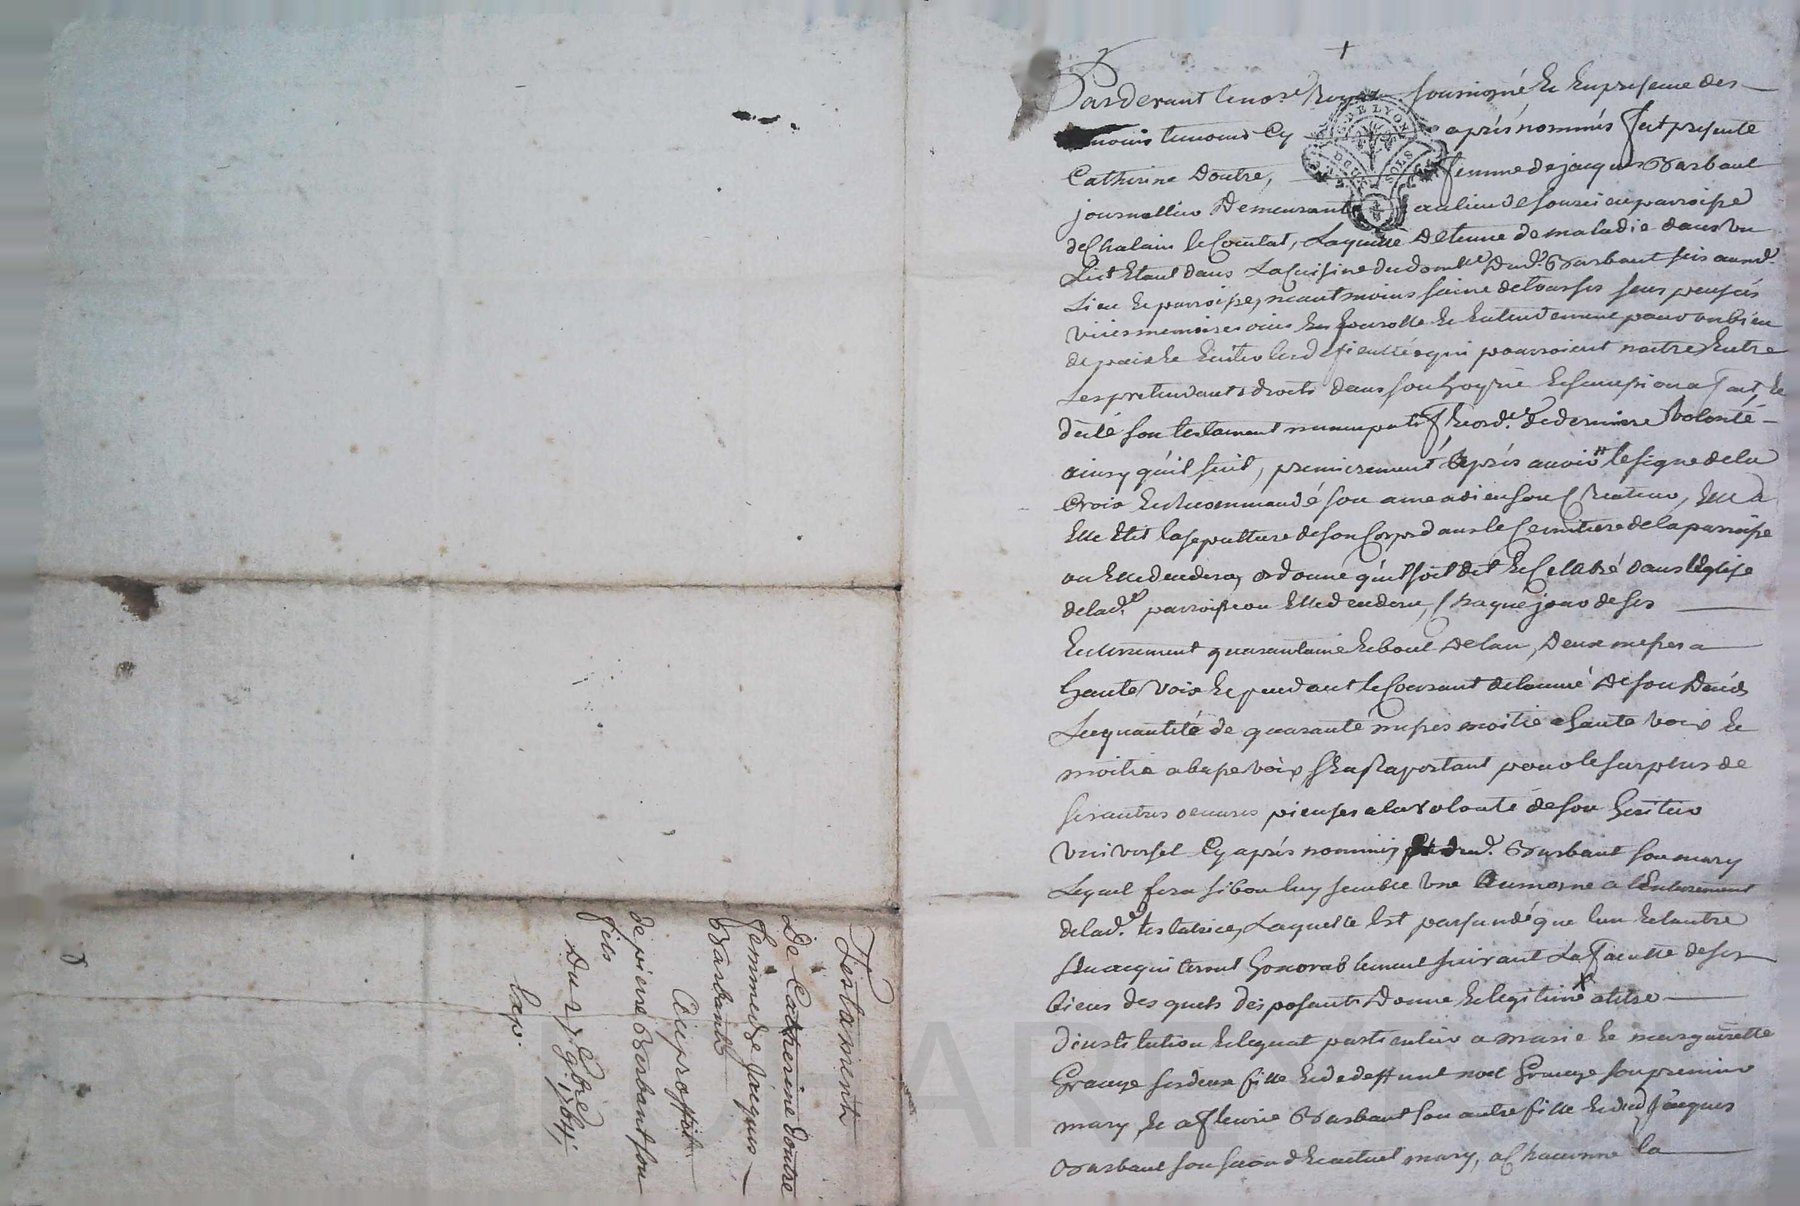 Testament
De Catherine Doutre
femme de jacques
Barbant
Au proffit
de pierre Barbant son
fils
Du 27 7bre 1764
Exp.
Pardevant le no.re Royal soussigné Et En presence des
temoins Cy après nommés fut presente
Catherine Doutre, femme de jacques Barbant
journallier Demeurant au lieu de parroisse
de Chalain le Comtal, Laquelle detenue de maladie dans un
Lict Etant dans La Cuisine du dom.le Dud. Barbant sis aud.
Lieu Et parroisse, neantmoins saine de tous ses sens pensées
memoire ouie Et parolle Et Entendement pour un bien
de paix Et Eviter les dificultés qui pourroient naitre Entre
Les pretendants droits dans son hoyrie Et succession a fait, Et
dicté son testament nuncupatif Et ord.ce de derniere volonté
ainsy qu'il suit, premierement après avoir le signe de la
Croix Et recommandé son ame a dieu son Createur, Elle a
Elle Elit la sepulture de son Corps dans le Cemitiere de la parroisse
ou Elle decedera, ordonne qu'il soit dit Et Celebré dans l'Eglise
de lad.e parroisse ou Elle decedera, Chaque jour de ses
Enterrement quarantaine Et bout de l'an, Deux messes a
haute voix Et pendant le Courant de l'année de son Decés
La quantité de quarante messes moitié a haute voix Et
moitié a basse voix s'En Raportant pour le surplus de
ses autres oeuvres pieuses a la volonté de son heritier
universel Cy après nommé, dud. Barbant son mary
Lequel fera si bon luy semble une Aumosne a l'Enterrement
de lad.e testatrice, Laquelle Est persuadé que l'un Et l'autre
s'En acquiteront honorablement suivant La faculté de ses
biens desquels disposant Donne Et legitime a titre
d'institution Et legat particulier a marie Et margueritte
Grange ses deux fille Et de deffunt noel Grange son premier
mary, Et a fleurie Barbant son autre fille Et dud. Jacques
Barbant son second Et actuel mary, a Chacunne la